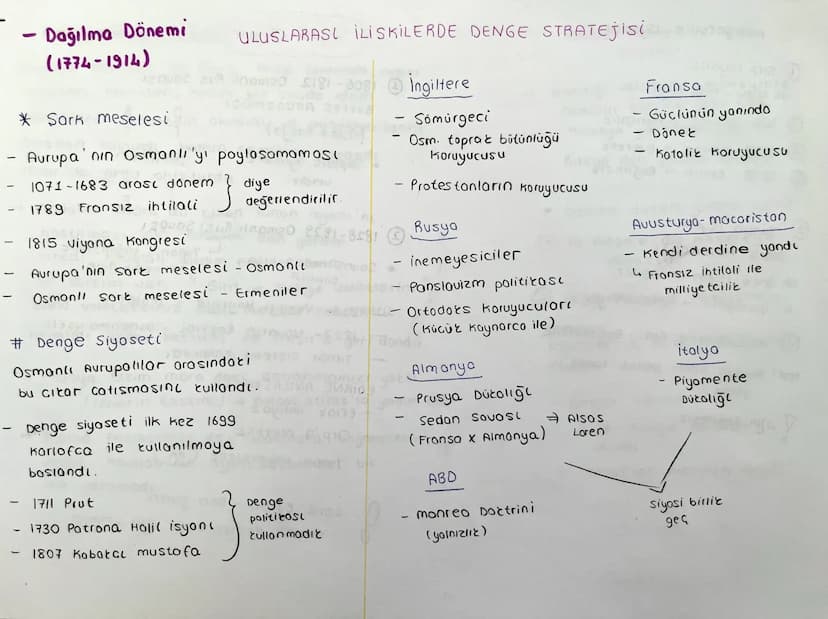 - Dağılma Dönemi
(1774-1914)
ULUSLARASI İLİSKİLERDE DENGE STRATEJİSİ
* Sark meselesi
- Avrupa'nın Osmanlı'yı paylasamaması
- 1071-1683 arası dönem
- 1789 Fransız ihtilali
} diye
değerlendirilir
- 1815 viyana Kongresi
- Avrupa'nin sark meselesi - Osmanlı
- Osmanlı sark meselesi - Ermeniler
# Denge Siyaseti
Osmanlı Avrupalılar arasındaki
bu cıkar catısmasını kullandı.
- Denge siyaseti ilk kez 1699
Karlofca ile kullanılmaya
baslandı.
- 1711 Prut
- 1730 Patrona Halil isyanı
- 1807 Kabakcı mustafa
} Denge
politikası
kullanmadık
İngiltere
- Sömürgeci
- Osm. toprak bütünlüğü
koruyucusu
- Protestanların koruyucusu
Fransa
- Güclünün yanında
- Dönek
- Katolik koruyucusu
Rusya
- inemeyesiciler
- Panslavizm politikası
- Ortodoks koruyucuları
(Kücük Kaynarca ile)
Avusturya-macaristan
- Kendi derdine yandı
↳ Fransız ihtilali ile
milliyetcilik
Almanya
- Prusya Dükalığı
- Sedan Savası → Alsas
(Fransa x Almanya) Loren
İtalya
- Piyamente
Dükalığı
siyasi birlik
geç
ABD
- monreo Doktrini
(yalnızlık)